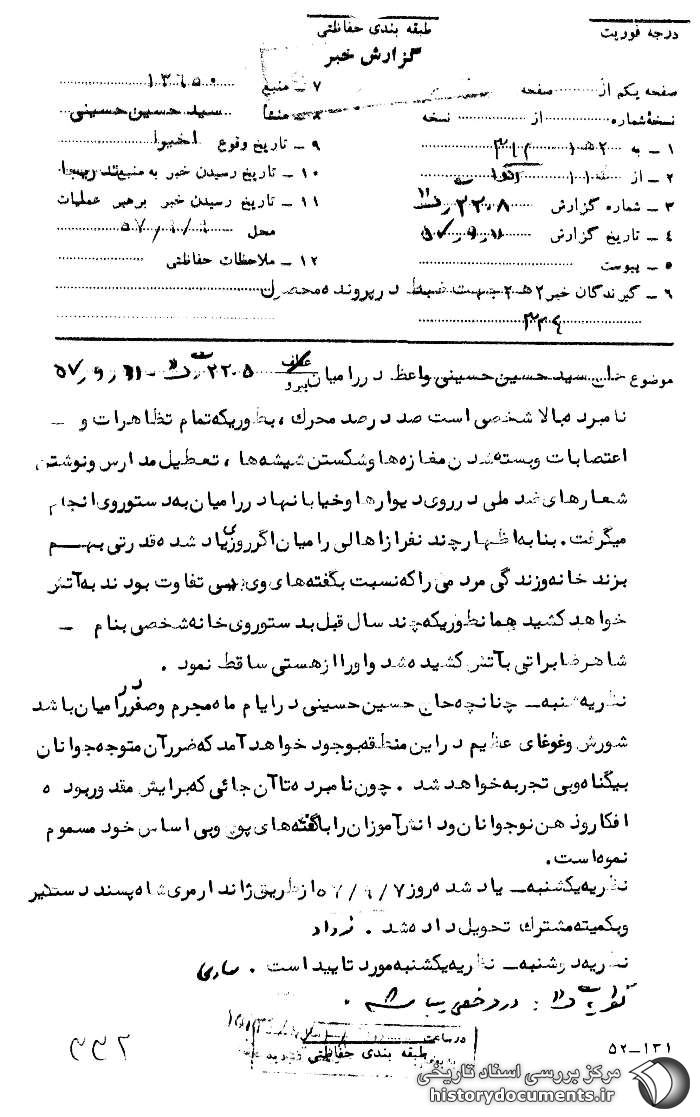 درجه فوریت
طبقه بندی حفاظتی
گزارش خبر
صفحه یکم از صفحه
نسخهٔ شماره از نسخه
۱ – به ۳۱۲
۲ – از
۳ – شماره گزارش ۲۲۰۸
۴ – تاریخ گزارش ۵۷٫۹٫۱۱
۵ – پیوست
۶ – گیرندگان خبر ۲ه۲ جهت ضبط در پرونده محصل
۷ – منبع ۱۳۶۵۰
۸ – منشأ سید حسین حسینی
۹ – تاریخ وقوع اخیرا
۱۰ – تاریخ رسیدن خبر به منبع تدریجا
۱۱ – تاریخ رسیدن خبر برهبر عملیات
محل ۵۷/۹/۹
۱۲ – ملاحظات حفاظتی
موضوع حاج سید حسین حسینی واعظ در رامیان عطف پیرو ۲۲۰۵
نامبرده بالا شخصی است صد در صد محرک ، بطوریکه تمام تظاهرات و –
اعتصابات وبسته شدن مغازه ها وشکستن شیشه ها ، تعطیل مدارس ونوشتن
شعارهای ضد ملی در روی دیوارها وخیابانها در رامیان به دستور وی انجام
میگرفت . بنا به اظهار چند نفر از اهالی رامیان اگر روزی یاد شده قدرتی بهم
بزند خانه وزندگی مردمی را که نسبت بگفته های وی بی تفاوت بودند به آتش
خواهد کشید همانطوریکه چند سال قبل بدستور وی خانه شخصی بنام –
شاهرضا براتی بآتش کشیده شد واورا از هستی ساقط نمود .
نظریه شنبه – چنانچه حاج حسین حسینی در ایام ماه محرم وصفر در رامیان باشد
شورش وغوغای عظیم در این منطقه بوجود خواهد آمد که ضرر آن متوجه جوانان
بیگناه وبی تجربه خواهد شد . چون نامبرده تا آن جائی که برایش مقدور بوده
افکار وذهن نوجوانان ودانش آموزان را با گفته های پوچ وبی اساس خود مسموم
نموده است .
نظریه یکشنبه – یاد شده روز ۵۷/۹/۷ از طریق ژاندارمری شاه پسند دستگیر
وبکمیته مشترک تحویل داده شد . فرداد
نظریه دوشنبه – نظریه یکشنبه مورد تایید است . ساری
در ساعت
طبقه بندی حفاظتی
۳۳۲
۵۲–۱۳۱
مرکز بررسی اسناد تاریخی
historydocuments.ir